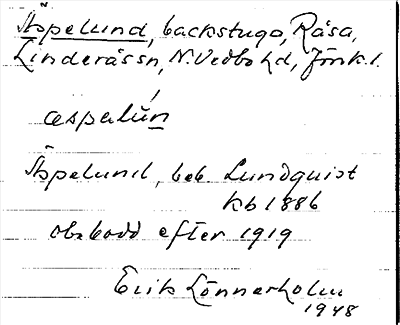 Äspelund, backstuga, Råsa,
Linderås sn, N. Vedbo hd, Jönk. l.
æspəlún
Äspelund, beb. Lundquist
kb 1886
obebodd efter 1919
Erik Lönnerholm
1948